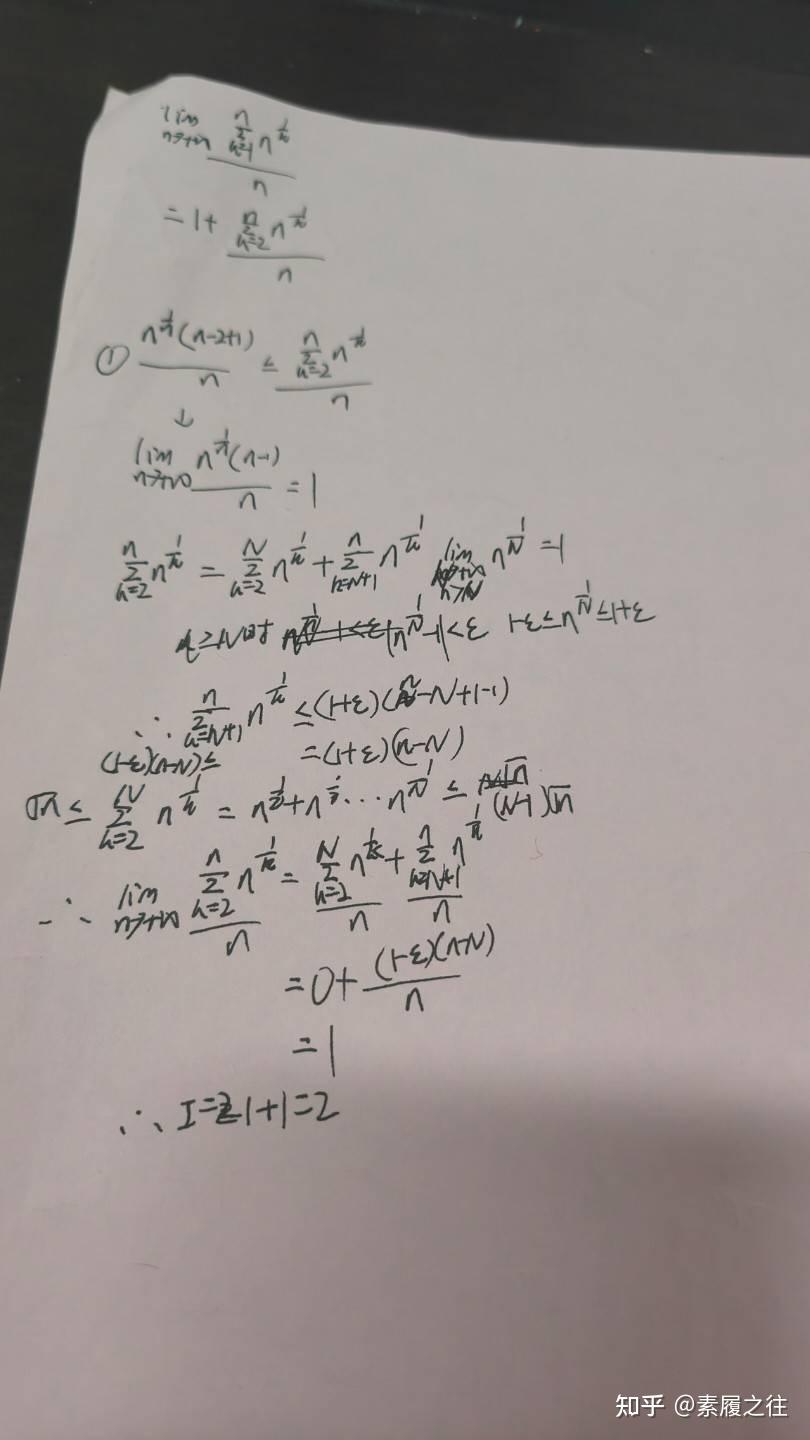 lim n→+∞ \frac{\sum_{k=1}^{n} n^{\frac{1}{k}}}{n}
= 1 + \frac{\sum_{k=2}^{n} n^{\frac{1}{k}}}{n}
① \frac{n^{\frac{1}{n}}(n-2+1)}{n} ≤ \frac{\sum_{k=2}^{n} n^{\frac{1}{k}}}{n}
↓
lim n→+∞ \frac{n^{\frac{1}{n}}(n-1)}{n} = 1
\sum_{k=2}^{n} n^{\frac{1}{k}} = \sum_{k=2}^{N} n^{\frac{1}{k}} + \sum_{k=N+1}^{n} n^{\frac{1}{k}} lim n^{\frac{1}{N}} = 1
≥N时 |n^{\frac{1}{N}}-1|<ε 1-ε≤n^{\frac{1}{N}}≤1+ε
∴ \sum_{k=N+1}^{n} n^{\frac{1}{k}} ≤(1+ε)(n-N+1-1)
(1-ε)(n-N)≤ =(1+ε)(n-N)
√n ≤ \sum_{k=2}^{N} n^{\frac{1}{k}} = n^{\frac{1}{2}}+n^{\frac{1}{3}}…n^{\frac{1}{N}} ≤ (N-1)√n
∴ lim n→+∞ \frac{\sum_{k=2}^{n} n^{\frac{1}{k}}}{n} = \frac{\sum_{k=2}^{N} n^{\frac{1}{k}}}{n} + \frac{\sum_{k=N+1}^{n} n^{\frac{1}{k}}}{n}
= 0 + \frac{(1-ε)(n-N)}{n}
= 1
∴ I=1+1=2
知乎 @素履之往